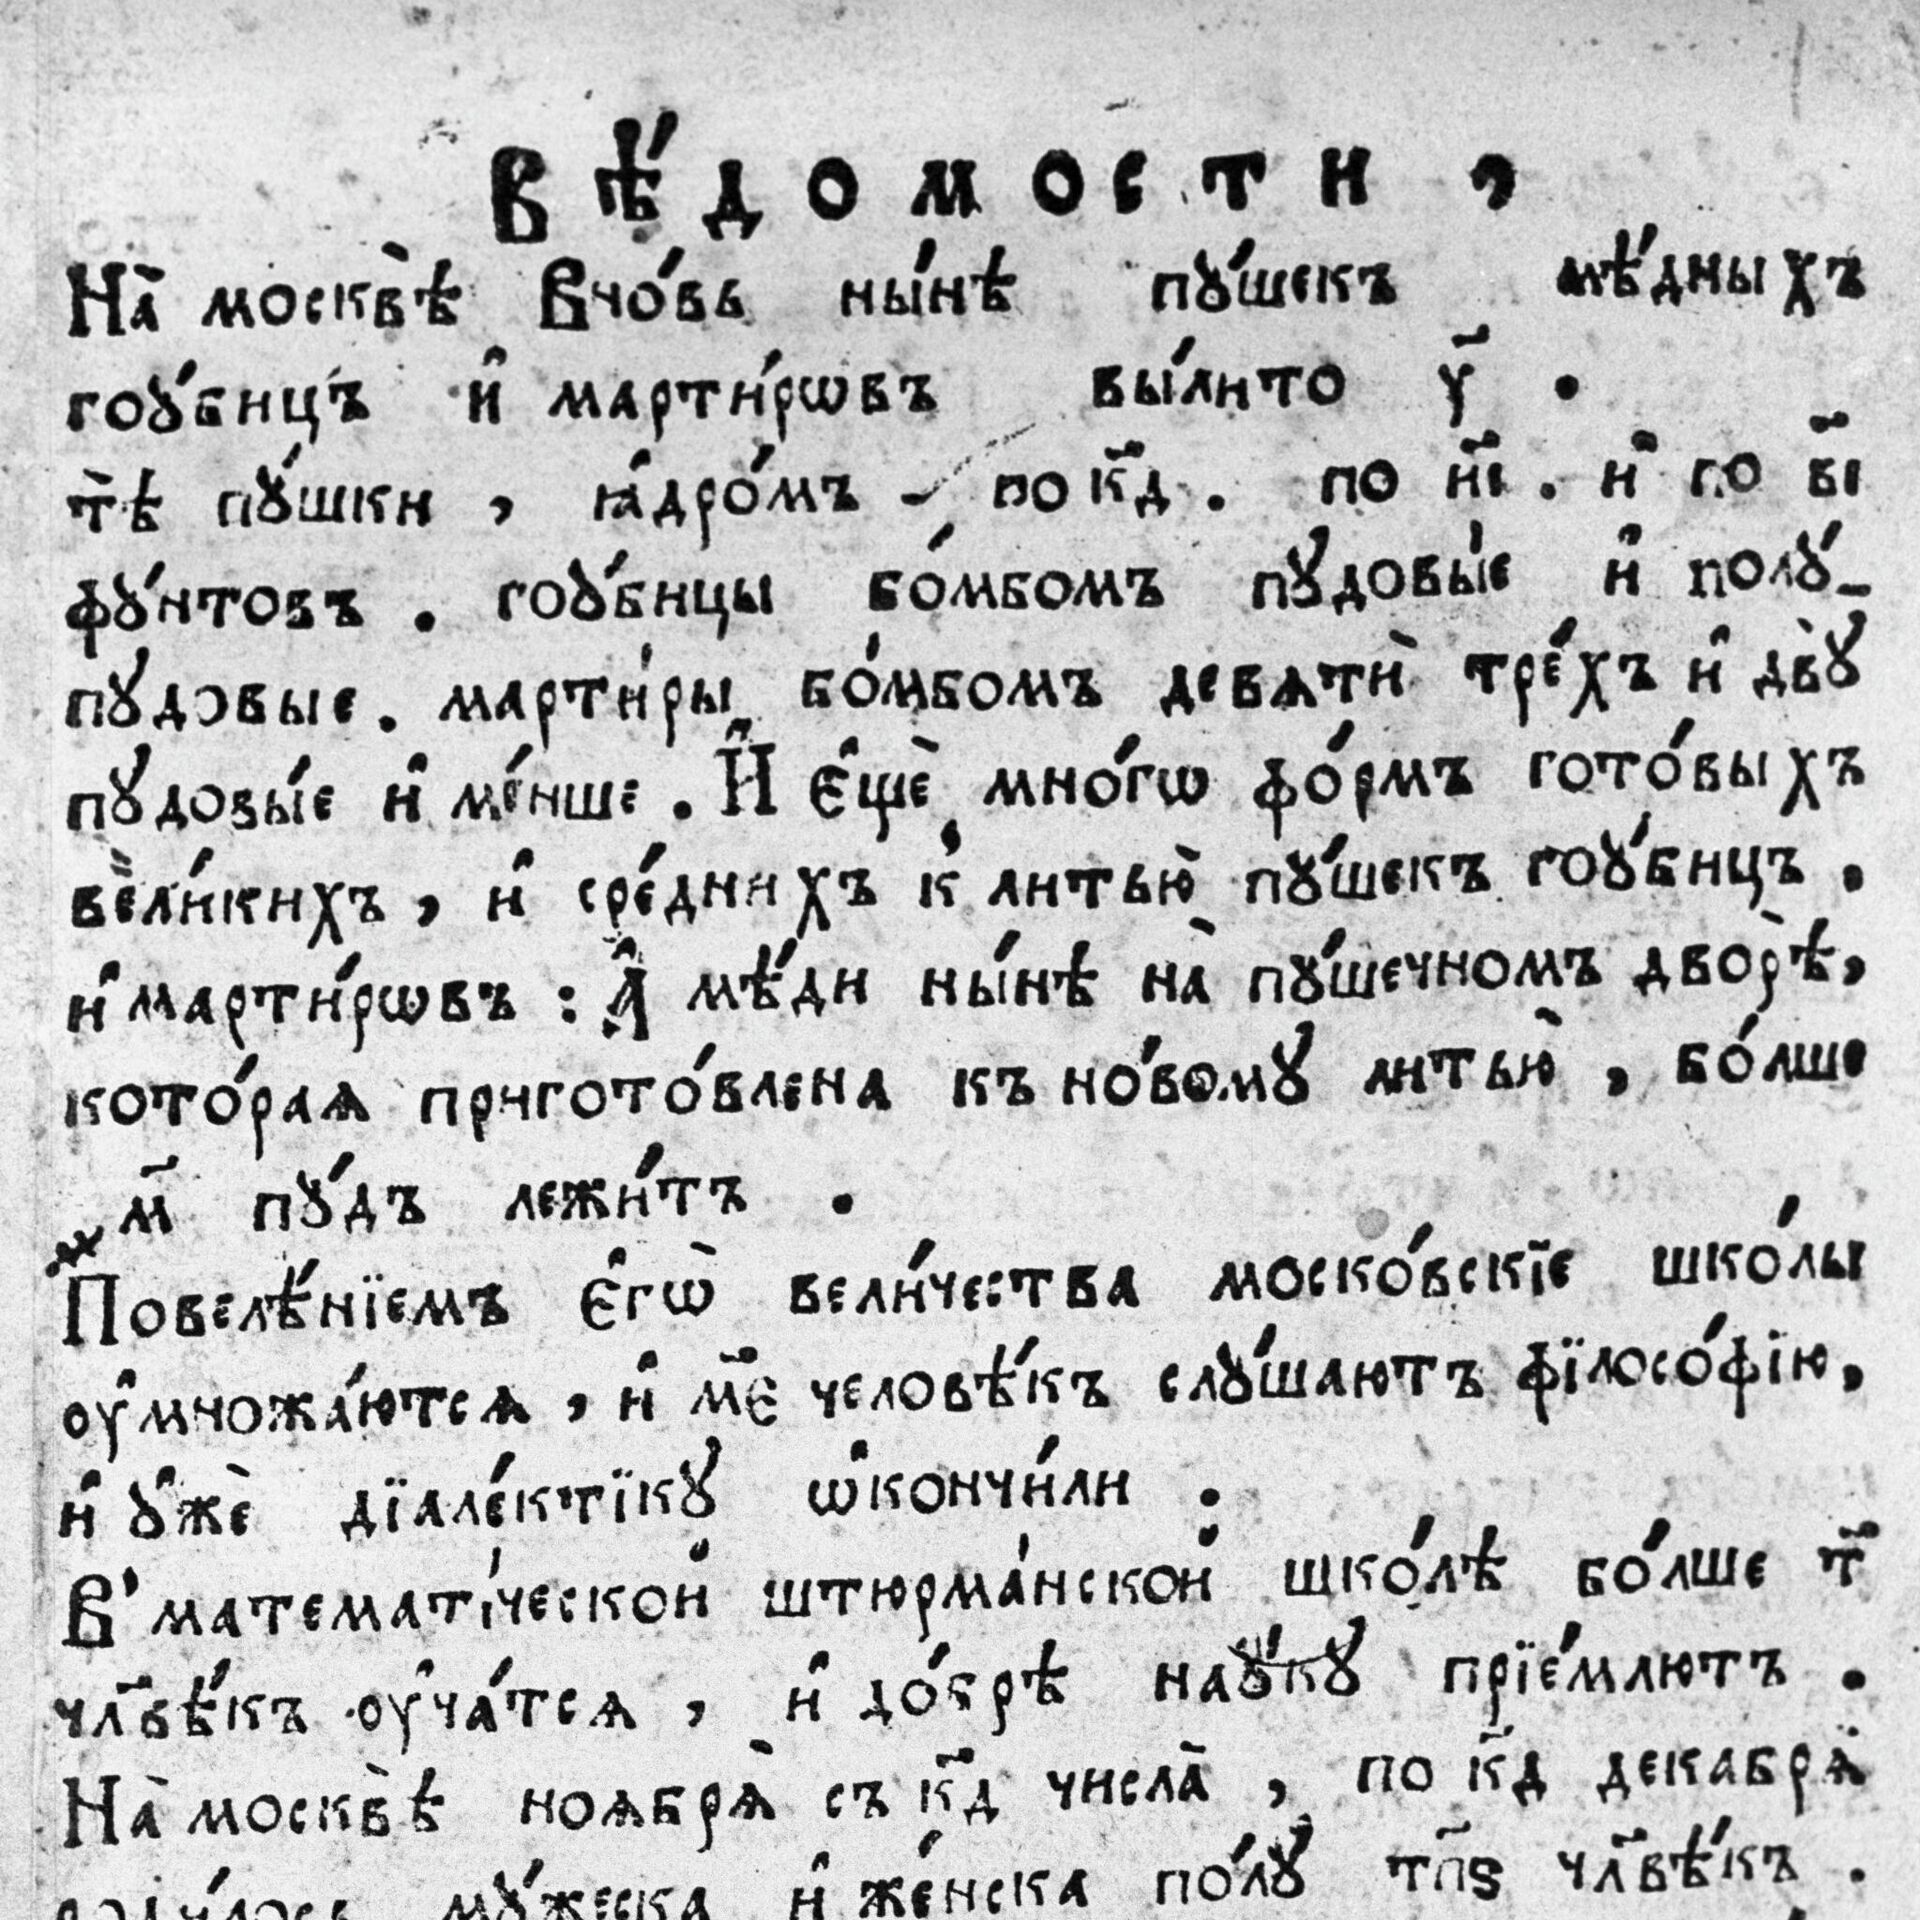 Вѣ́домости ,
На̀ москвѣ̀ вно́вь ны́нѣ пꙋ́шекъ мѣ́дныхъ
гоꙋ́бицъ и҆ марти́рѡвъ вы́лито у҃ .
тѣ̀ пꙋ́шки , ꙗ҆дро́мъ - по к҃д . по и҃і . и҆ по в҃і
фꙋ́нтовъ . гоꙋ́бицы бо́мбомъ пꙋдовы́е и҆ полꙋ́-
пꙋдовые . марти́ры бо́мбомъ девѧти̇̀ тре́хъ и҆ двꙋ̀
пꙋдовы́е и҆ ме́нше . И҆ є҆щѐ мно́гѡ фо́рмъ гото́выхъ
вели́кихъ , и҆ сре́днихъ к̾ литью̀ пꙋ́шекъ гоꙋ́бицъ .
и҆ марти́рѡвъ : А҆ мѣ́ди ны́нѣ на̀ пꙋ́шечномъ дворѣ̀ ,
кото́раѧ пригото́влена къ но́вомꙋ литью̀ , бо́лше
м҃ пꙋ́дъ лежи́тъ .
Повелѣ́нїемъ є҆гѡ̀ вели́чества моско́вскїе шко́лы
оу҆множа́ютсѧ , и҆ м҃є человѣ́къ слꙋ́шаютъ фїлосо́фїю ,
и҆ ꙋ҆жѐ дїале́ктїкꙋ ѡ҆кончи́ли .
В̾ математі́ческой штюрма́нской шко́лѣ бо́лше т҃
чл҃вѣ́къ оу҆ча́тсѧ , и҆ до́брѣ наꙋ́кꙋ прїе́млютъ .
На̀ москвѣ̀ ноѧбрѧ̀ съ к҃д числа̀ , по к҃д декабрѧ̀
мꙋ́жеска и҆ же́нска по́лꙋ тп҃ѕ чл҃вѣ́къ .